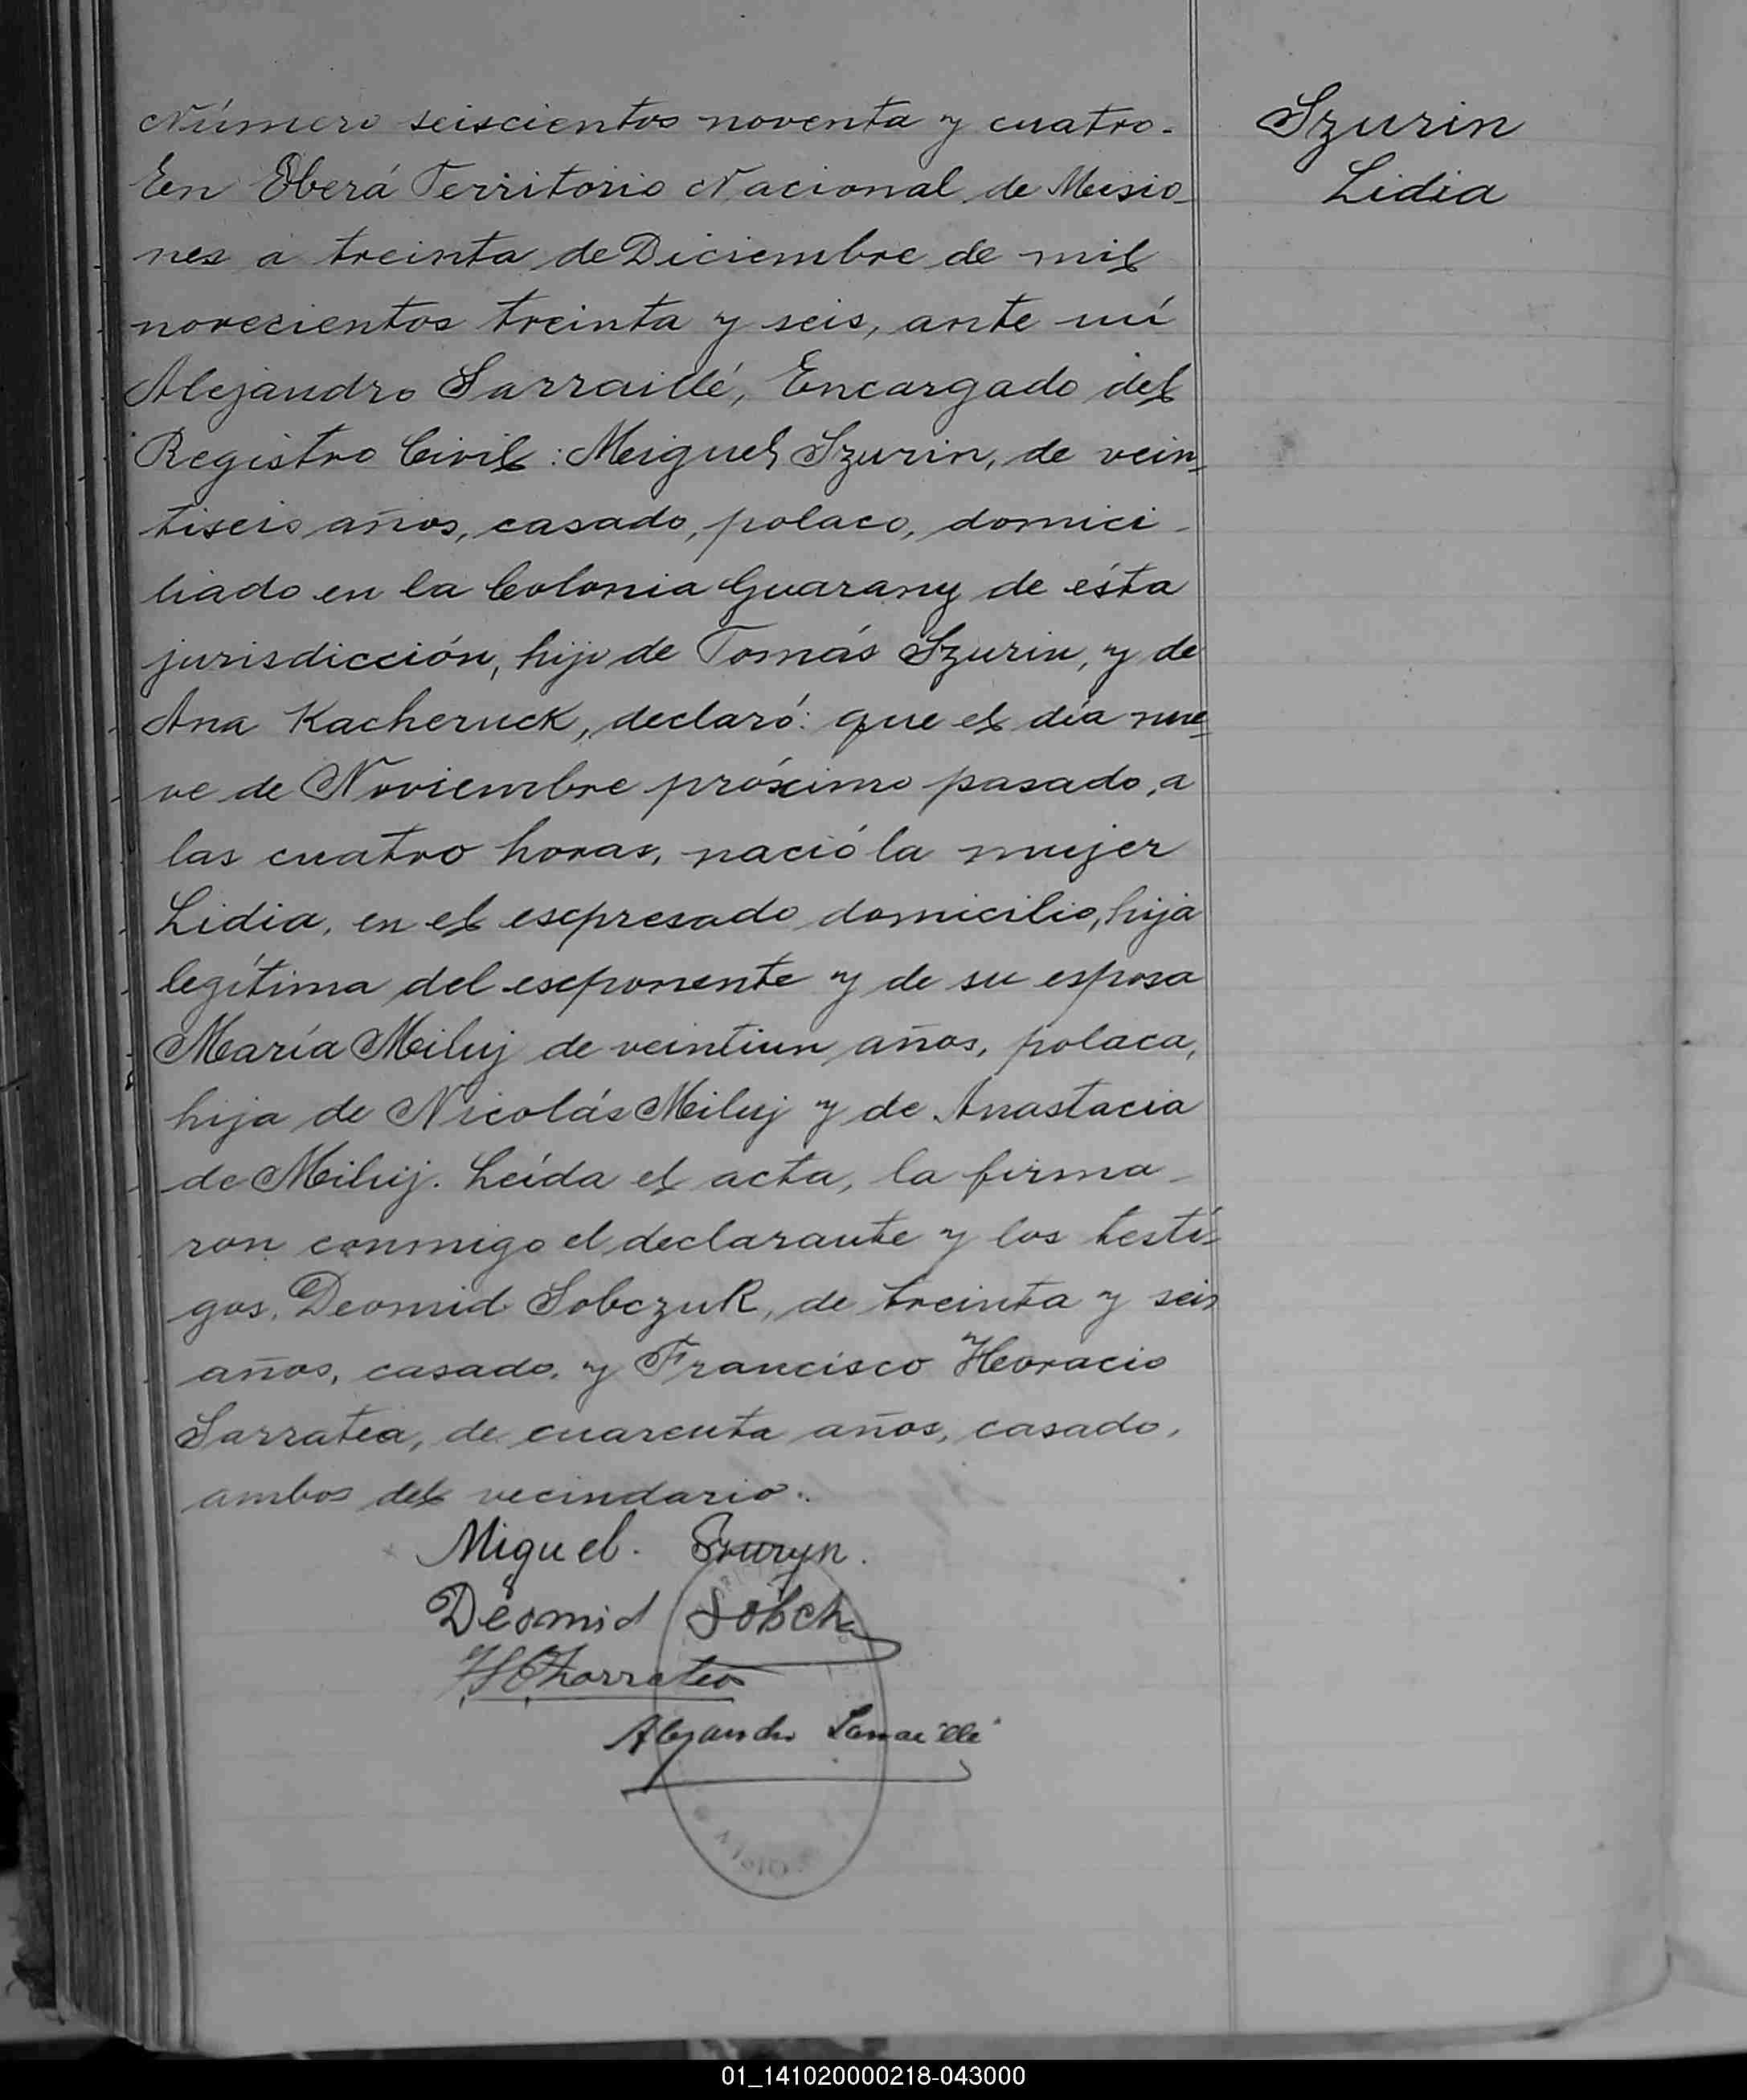 Número seiscientos noventa y cuatro.
Szurin
Lidia
En Oberá Territorio Nacional de Misio_
nes a treinta de Diciembre de mil
novecientos treinta y seis, ante mí
Alejandro Sarraillé, Encargado del
Registro Civil: Miguel Szurin, de vein_
tiseis años, casado, polaco, domici_
liado en la Colonia Guarany de ésta
jurisdicción, hijo de Tomás Szurin, y de
Ana Kacheruck, declaró: que el día nue_
ve de Noviembre próximo pasado, a
las cuatro horas, nació la mujer
Lidia, en el expresado domicilio, hija
legítima del exponente y de su esposa
María Miluj de veintiun años, polaca,
hija de Nicolás Miluj y de Anastacia
de Miluj. Leída el acta, la firma_
ron conmigo el declarante y los testi_
gos, Deomid Sobczuk, de treinta y seis
años, casado, y Francisco Horacio
Sarratea, de cuarenta años, casado,
ambos del vecindario.
Miguel. Szuryn.
Deomid Sobch
Alejandro Sarraillé
01_141020000218-043000